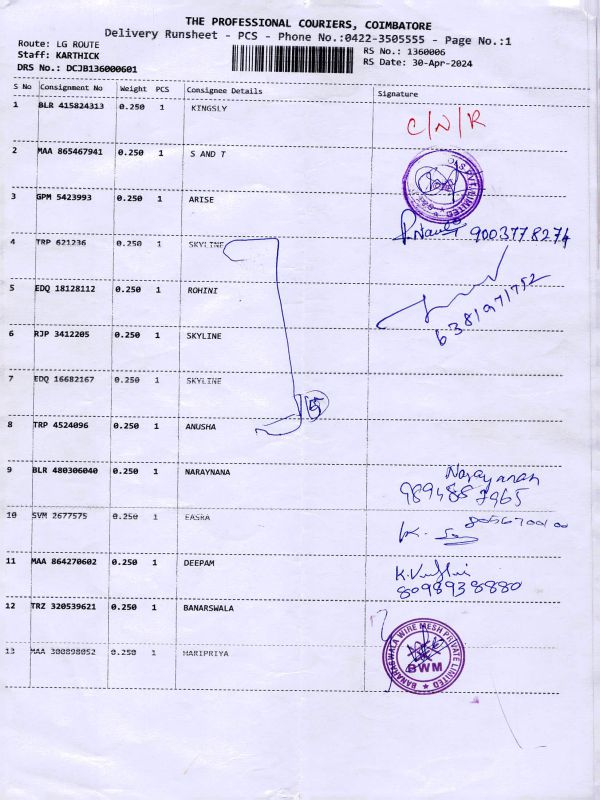 THE PROFESSIONAL COURIERS, COIMBATORE
Delivery Runsheet - PCS - Phone No.:0422-3505555 - Page No.:1
Route: LG ROUTE
RS No.: 1360006
Staff: KARTHICK
RS Date: 30-Apr-2024
DRS No.: DCJB136000601
S No Consignment No Weight PCS Consignee Details Signature
1 BLR 415824313 0.250 1 KINGSLY C/N/R
2 MAA 865467941 0.250 1 S AND T
3 GPM 5423993 0.250 1 ARISE
9003778274
4 TRP 621236 0.250 1 SKYLINE
5 EDQ 18128112 0.250 1 ROHINI
6381971752
6 RJP 3412205 0.250 1 SKYLINE
7 EDQ 16682167 0.250 1 SKYLINE
5
8 TRP 4524096 0.250 1 ANUSHA
9 BLR 480306040 0.250 1 NARAYNANA Narayanan
10 SVM 2677575 0.250 1 EASRA
11 MAA 864270602 0.250 1 DEEPAM
8098938880
12 TRZ 320539621 0.250 1 BANARSWALA
BANARASWALA WIRE MESH PRIVATE LIMITED
BWM
13 MAA 300898052 0.250 1 HARIPRIYA